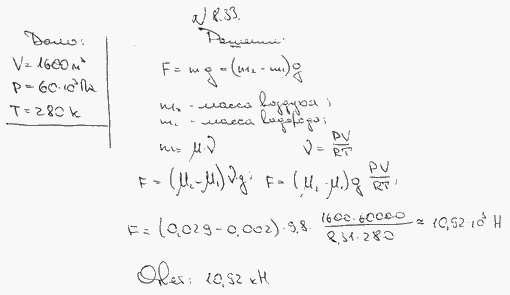 № 8.33.
Дано:
V = 1600 м³
P = 60·10³ Па
T = 280 К
Решение:
F = mg = (m₂ - m₁)g
m₂ - масса воздуха;
m₁ - масса водорода;
m = μ·ν ν = PV/RT
F = (μ₂ - μ₁)νg; F = (μ₂ - μ₁)g PV/RT;
F = (0,029 - 0,002)·9,8· 1600·60000/8,31·280 ≈ 10,92·10³ Н
Ответ: 10,92 кН